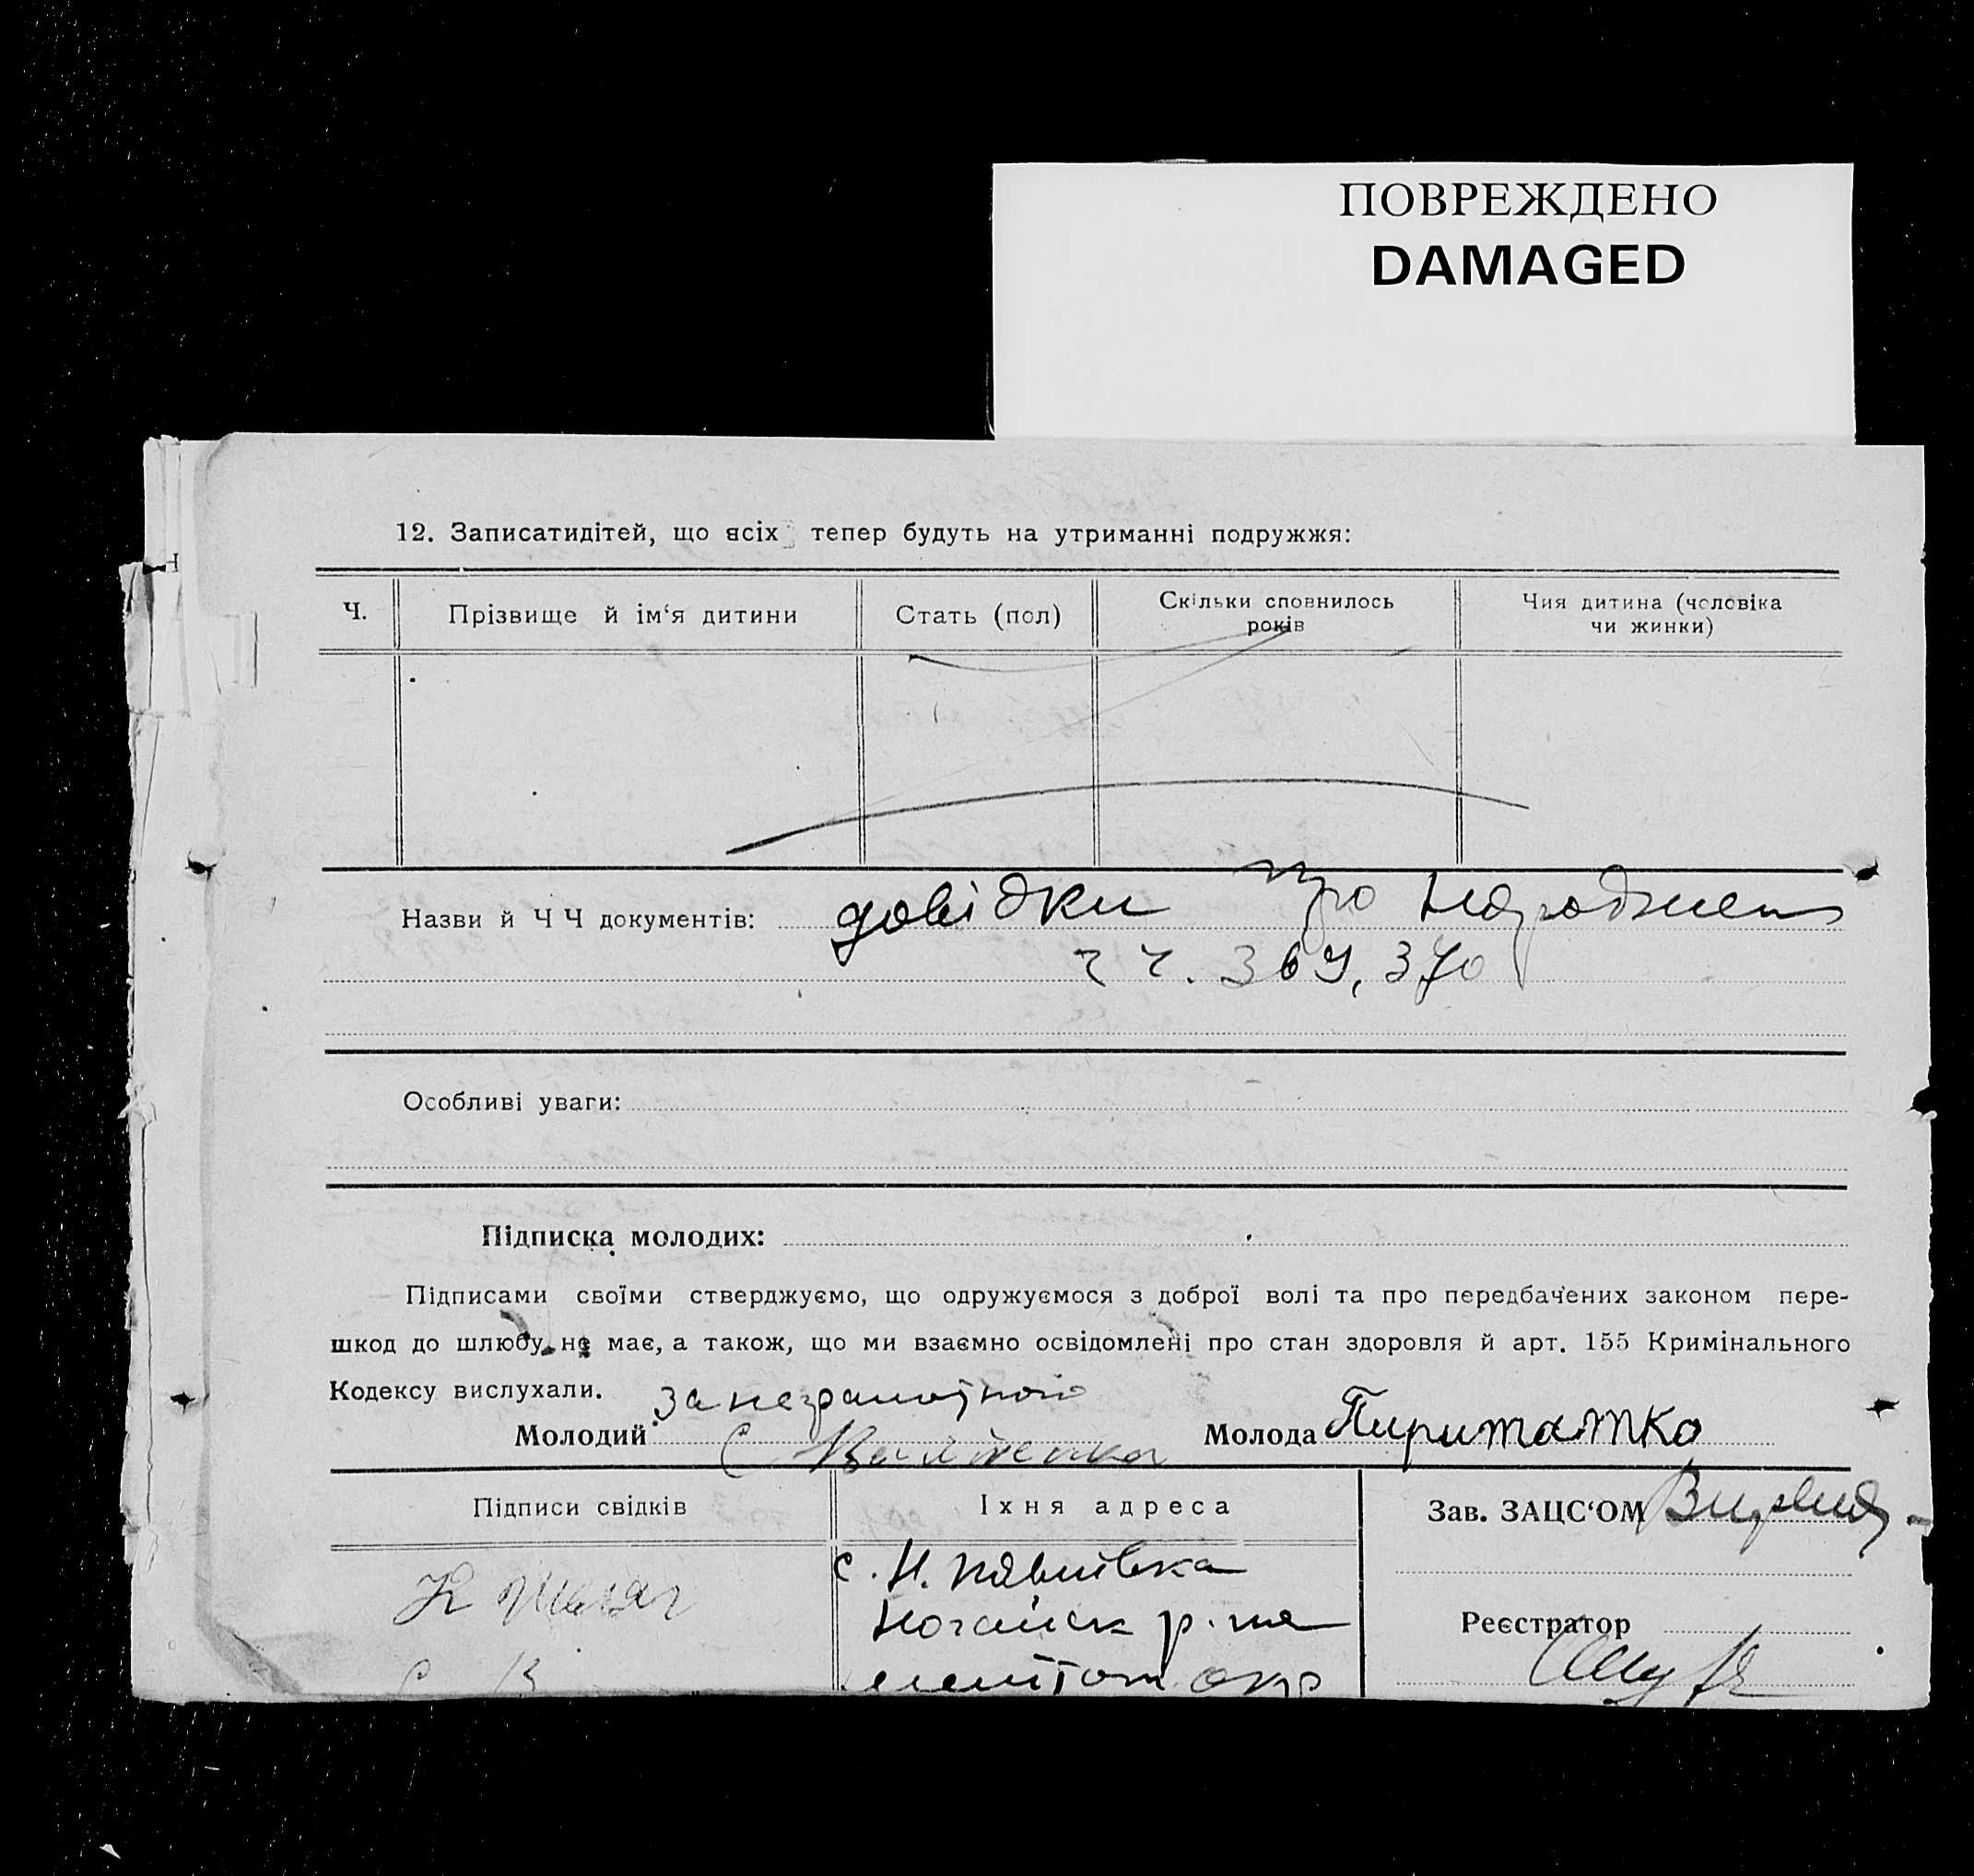 ПОВРЕЖДЕНО
DAMAGED
12. Записатидітей, що всіх тепер будуть на утриманні подружжя:
Ч. Прізвище й ім‘я дитини Стать (пол) Скільки сповнилось років Чия дитина (чоловіка чи жинки)
Назви й Ч Ч документів: довідки про народжен
ч ч. 369, 370
Особливі уваги:
Підписка молодих:
Підписами своїми стверджуємо, що одружуємося з доброї волі та про передбачених законом пере-
шкод до шлюбу не має, а також, що ми взаємно освідомлені про стан здоровля й арт. 155 Кримінального
Кодексу вислухали. за неграмотного
Молодий С Молода
Підписи свідків Їхня адреса Зав. ЗАЦС‘ОМ
с. Н. Павлівка
Ногайск р. на
Реєстратор
мелітоп окр